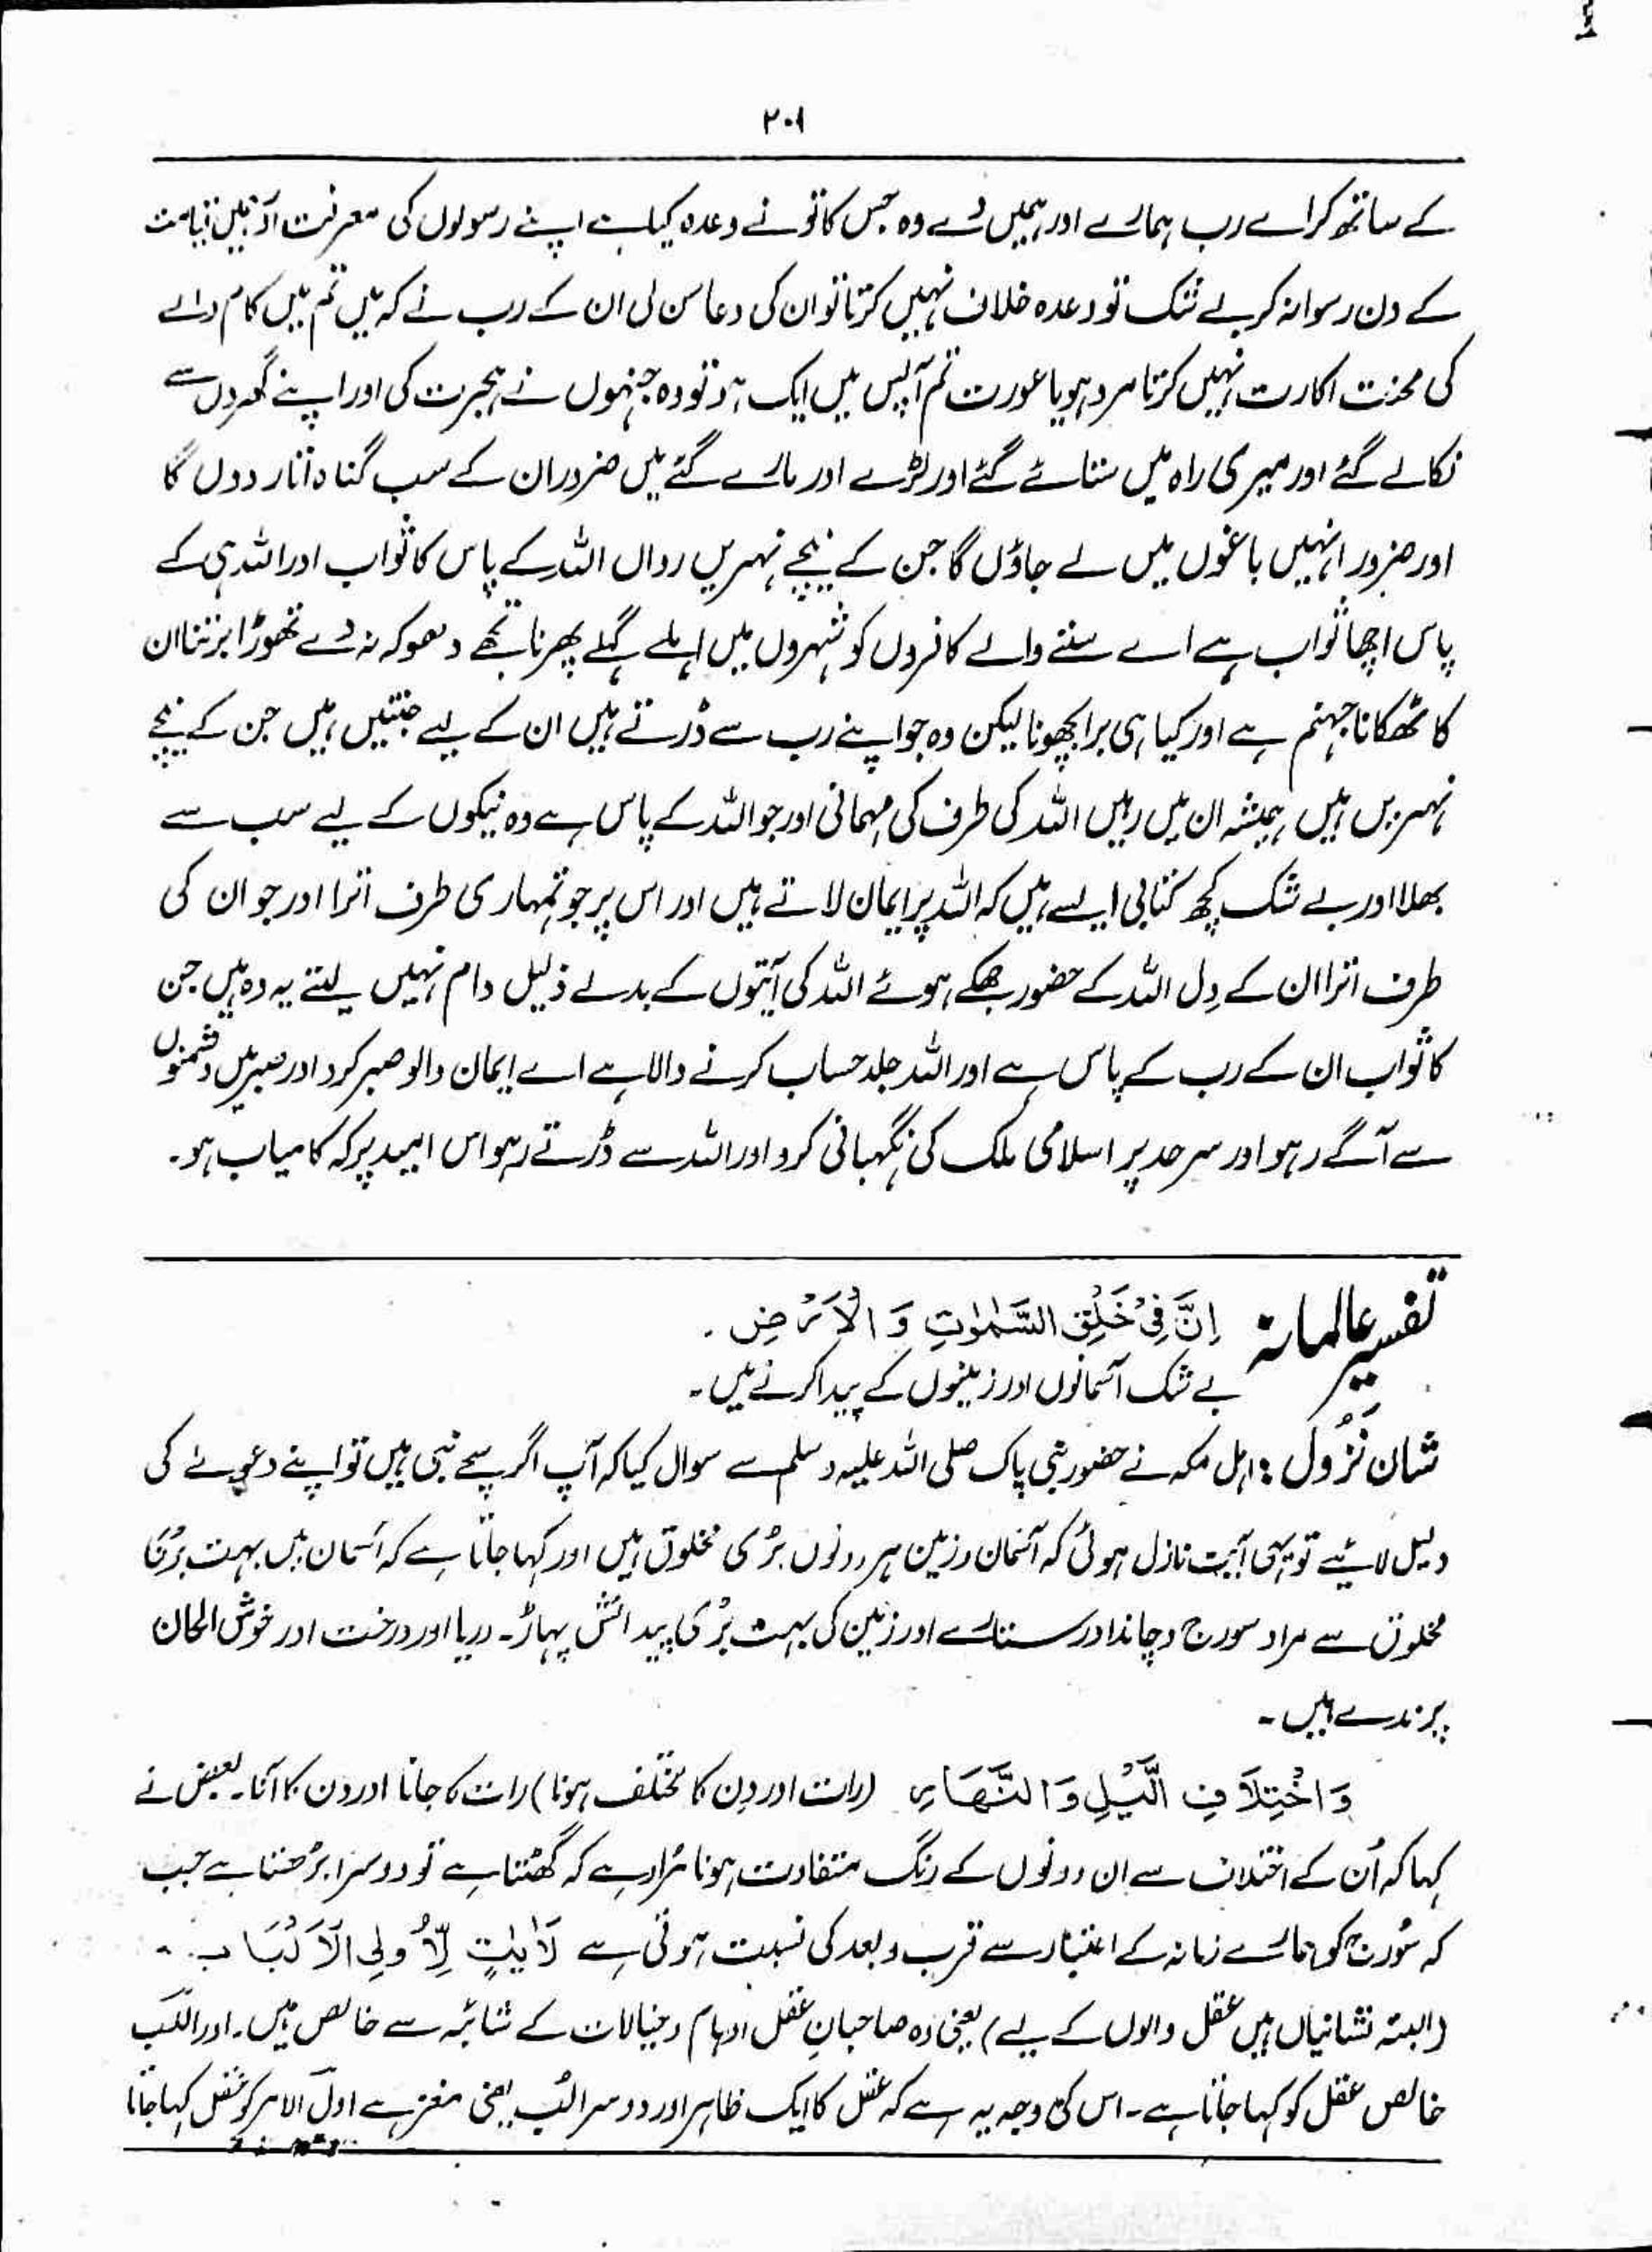 ۲۰۱
کے ساتھ کر اے رب ہمارے اور ہمیں دے وہ جس کا تو نے وعدہ کیا ہے اپنے رسولوں کی معرفت اور ہمیں قیامت
کے دن رسوا نہ کر بے شک تو وعدہ خلاف نہیں کرتا تو ان کی دعا سن لی ان کے رب نے کہ میں تم میں کام والے
کی محنت اکارت نہیں کرتا مرد ہو یا عورت تم آپس میں ایک ہو تو وہ جنہوں نے ہجرت کی اور اپنے گھروں سے
نکالے گئے اور میری راہ میں ستائے گئے اور لڑے اور مارے گئے میں ضرور ان کے سب گناہ اتار دوں گا
اور ضرور انہیں باغوں میں لے جاؤں گا جن کے نیچے نہریں رواں اللہ کے پاس کا ثواب اور اللہ ہی کے
پاس اچھا ثواب ہے اے سننے والے کافروں کو شہروں میں اہلے گہلے پھرنا تجھے دھوکہ نہ دے تھوڑا برتنا ان
کا ٹھکانا جہنم ہے اور کیا ہی برا بچھونا لیکن وہ جو اپنے رب سے ڈرتے ہیں ان کے لیے جنتیں ہیں جن کے نیچے
نہریں ہیں ہمیشہ ان میں رہیں اللہ کی طرف کی مہمانی اور جو اللہ کے پاس ہے وہ نیکوں کے لیے سب سے
بھلا اور بے شک کچھ کتابی ایسے ہیں کہ اللہ پر ایمان لاتے ہیں اور اس پر جو تمہاری طرف اترا اور جو ان کی
طرف اترا ان کے دِل اللہ کے حضور جھکے ہوئے اللہ کی آیتوں کے بدلے ذلیل دام نہیں لیتے یہ وہ ہیں جن
کا ثواب ان کے رب کے پاس ہے اور اللہ جلد حساب کرنے والا ہے اے ایمان والو صبر کرو اور صبر میں دشمنوں
سے آگے رہو اور سرحد پر اسلامی ملک کی نگہبانی کرو اور اللہ سے ڈرتے رہو اس امید پر کہ کامیاب ہو۔
تفسیر عالمانہ اِنَّ فِیْ خَلْقِ السَّمٰوٰتِ وَ الْاَرْضِ .
بے شک آسمانوں اور زمینوں کے پیدا کرنے میں۔
شان نُزُول : اہل مکہ نے حضور نبی پاک صلی اللہ علیہ وسلم سے سوال کیا کہ آپ اگر سچے نبی ہیں تو اپنے دعوے کی
دلیل لائیے تو یہی آیت نازل ہوئی کہ آسمان و زمین ہر دونوں بڑی مخلوق ہیں اور کہا جاتا ہے کہ آسمان میں بہت بڑی
مخلوق سے مراد سورج و چاند اور ستارے اور زمین کی بہت بڑی پیدائش پہاڑ۔ دریا اور درخت اور خوش الحان
پرندے ہیں۔
وَ اخْتِلَافِ الَّیْلِ وَ النَّهَارِ (رات اور دِن کا مختلف ہونا) رات کا جانا اور دن کا آنا۔ بعض نے
کہا کہ اُن کے اختلاف سے ان دونوں کے رنگ متفاوت ہونا مُراد ہے کہ گھٹتا ہے تو دوسرا بڑھتا ہے جب
کہ سُورج کو ہمارے زمانہ کے اعتبار سے قرب و بعد کی نسبت ہوتی ہے لَاٰیٰتٍ لِّاُولِی الْاَلْبَابِ۔
(البتہ نشانیاں ہیں عقل والوں کے لیے) یعنی وہ صاحبانِ عقل اوہام و خیالات کے شائبہ سے خالص ہیں۔ اور اللّب
خالص عقل کو کہا جاتا ہے۔ اس کی وجہ یہ ہے کہ عقل کا ایک ظاہر اور دوسرا لُب یعنی مغز ہے اوّل الامر کو عقل کہا جاتا